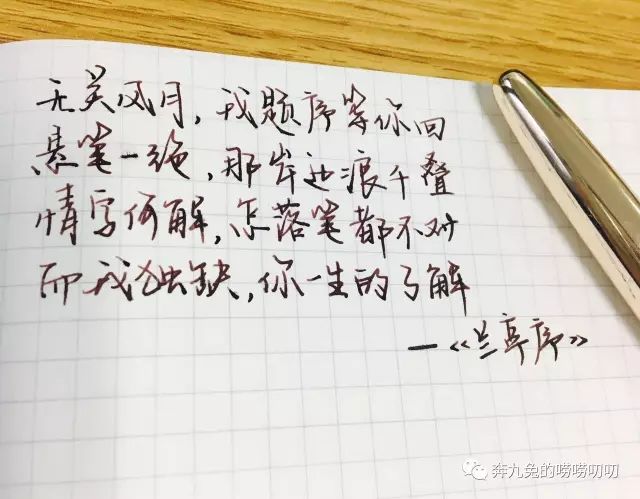 无关风月，我题序等你回
悬笔一绝，那岸边浪千叠
情字何解，怎落笔都不对
而我独缺，你一生的了解
—《兰亭序》
奔九兔的唠唠叨叨